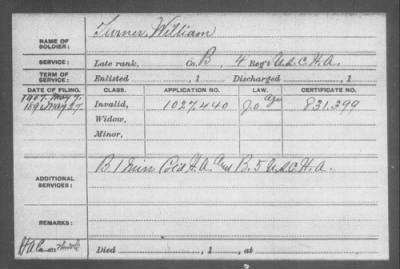 NAME OF SOLDIER: Turner, William
SERVICE: Late rank, Co. B, 4 Reg't U.S.C.H.A.
TERM OF SERVICE: Enlisted , 1 Discharged , 1
DATE OF FILING. CLASS. APPLICATION NO. LAW. CERTIFICATE NO.
1907, May 7.
189 , May 27. Invalid, 1027.440 831.399
Widow,
Minor,
ADDITIONAL SERVICES: B. 1 Cold H.A. and B. 5 U.S.C.H.A.
REMARKS:
Died , 1 , at